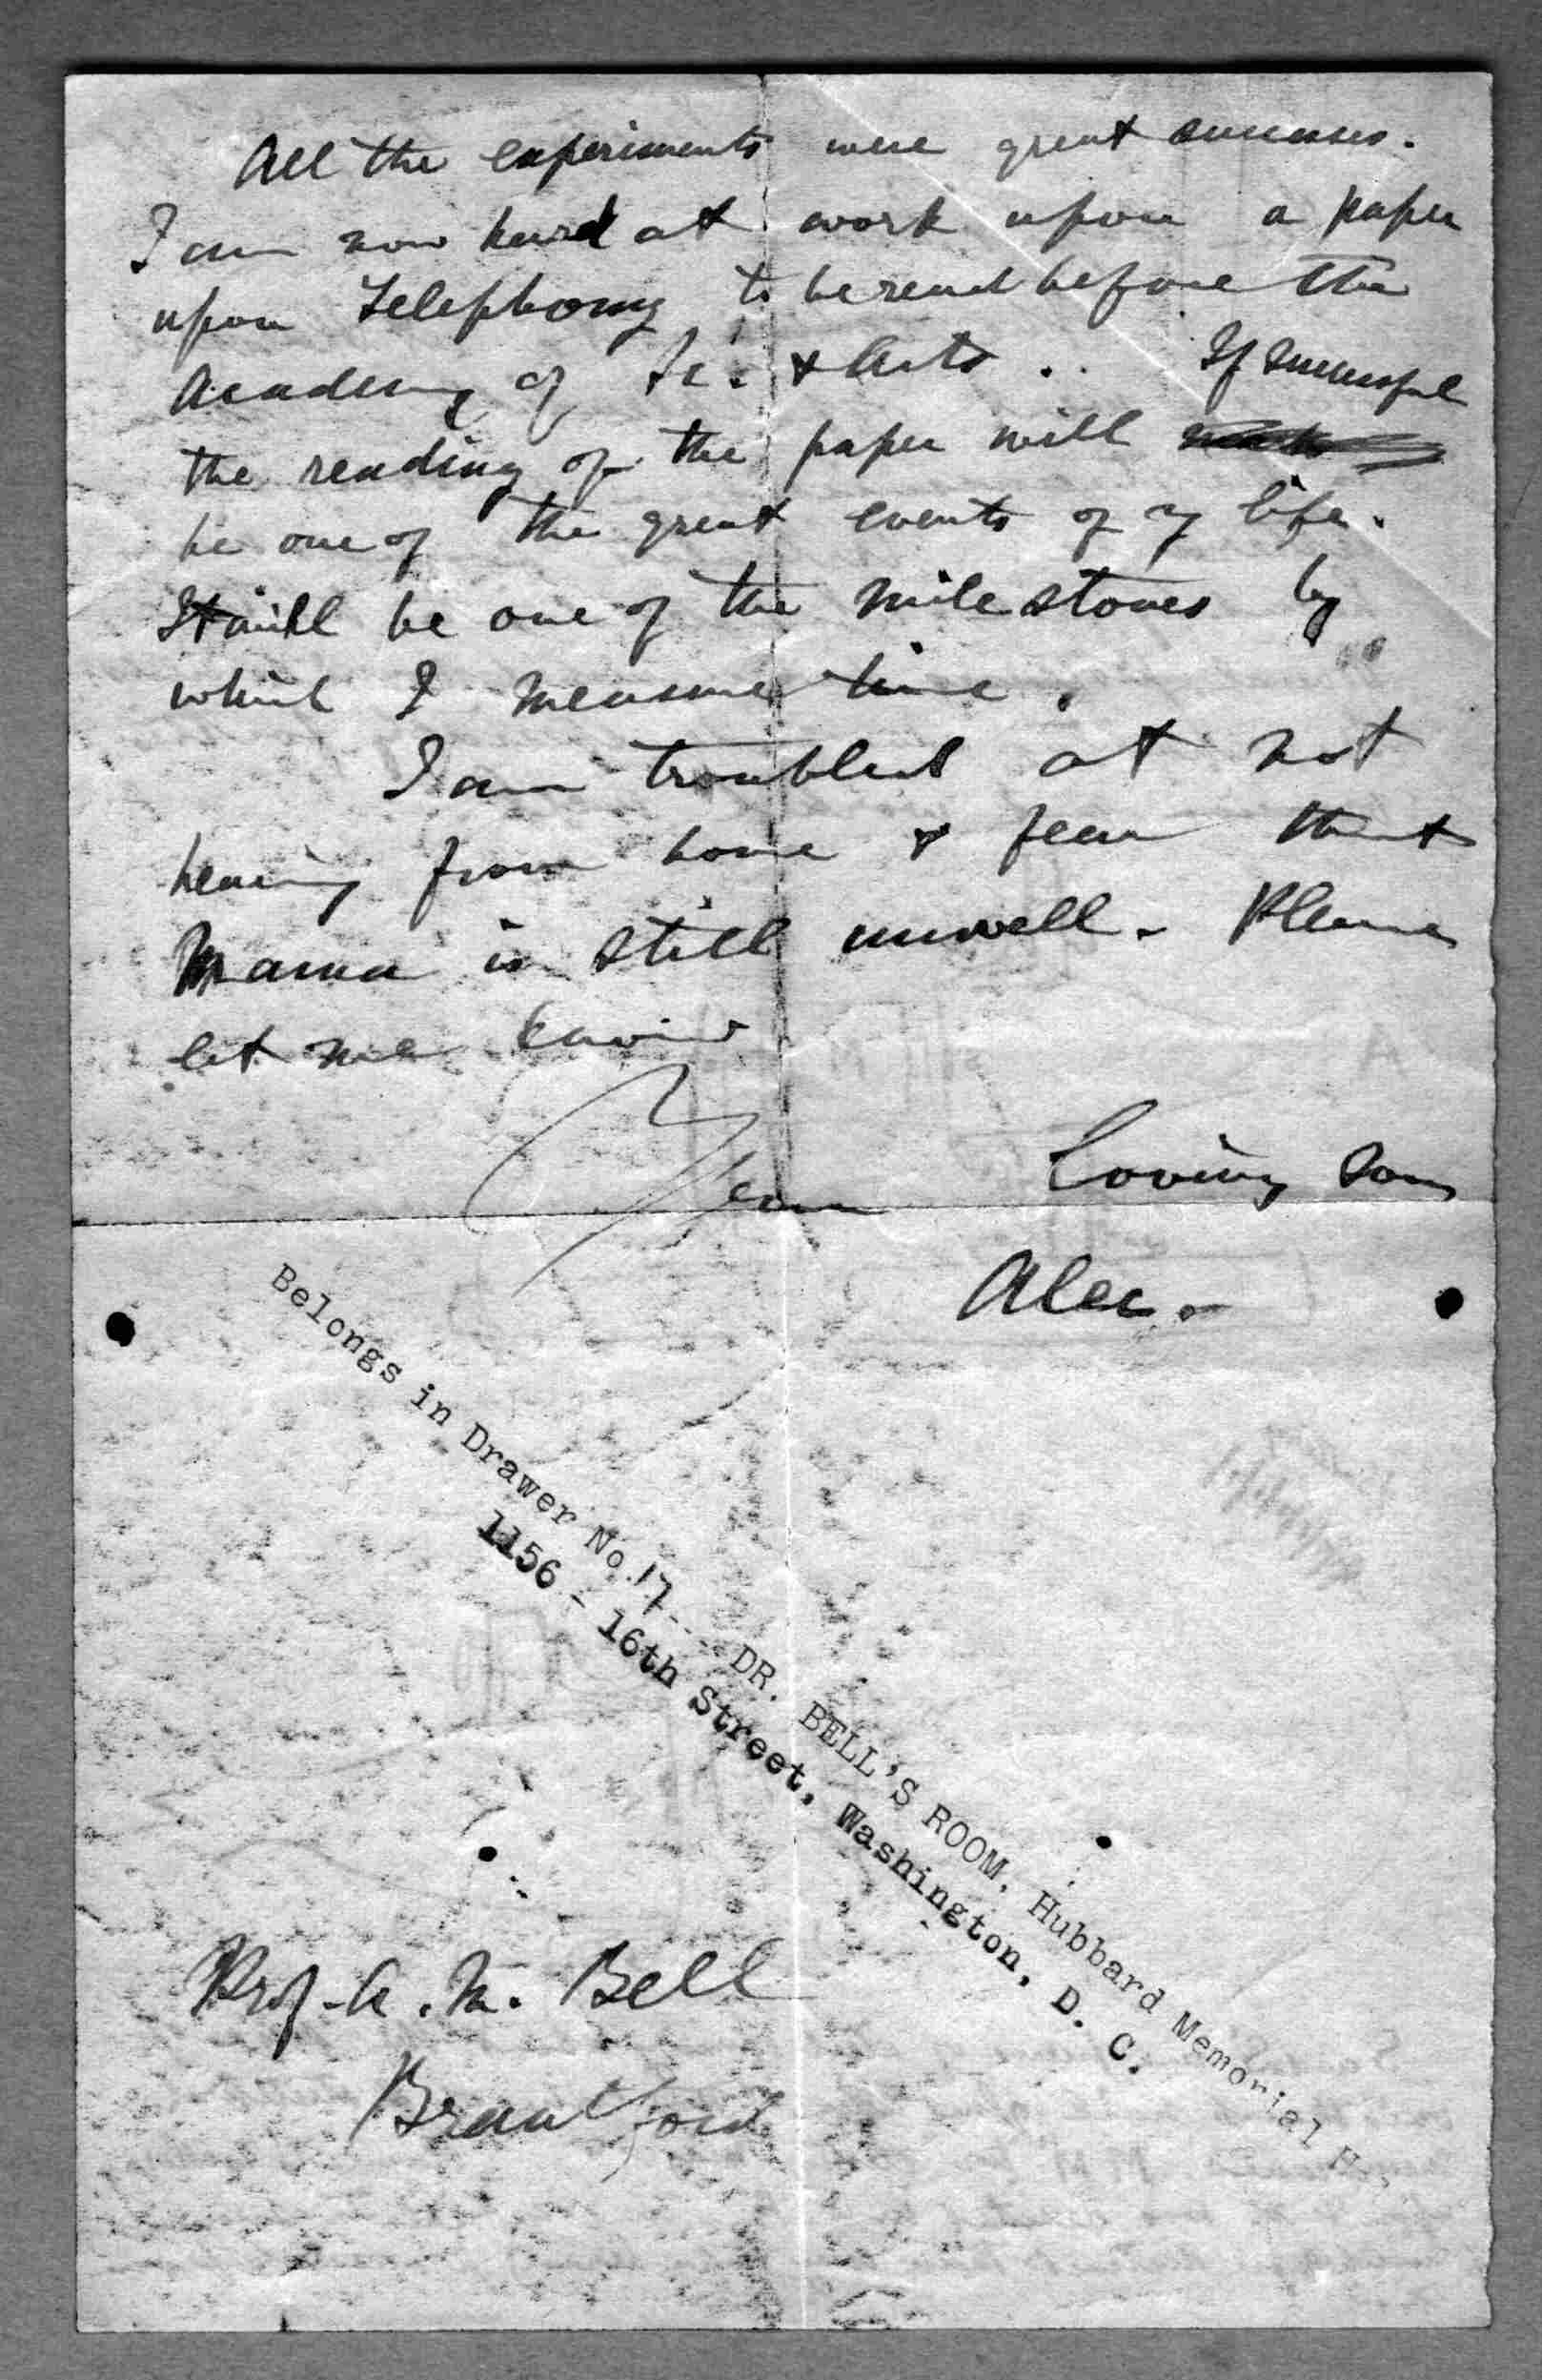 All the experiments were great successes.
I am now hard at work upon a paper
upon Telephony to be read before the
Academy of Sc. & Arts.. If successful
the reading of the paper will
be one of the great events of my life.
It will be one of the milestones by
which I measure time.
I am troubled at not
hearing from home & fear that
Mama is still unwell. Please
let me know
Your loving son
Alec.
Belongs in Drawer No.17---DR. BELL'S ROOM, Hubbard Memorial
1156 - 16th Street, Washington, D. C.
Prof. A. M. Bell
Brantford